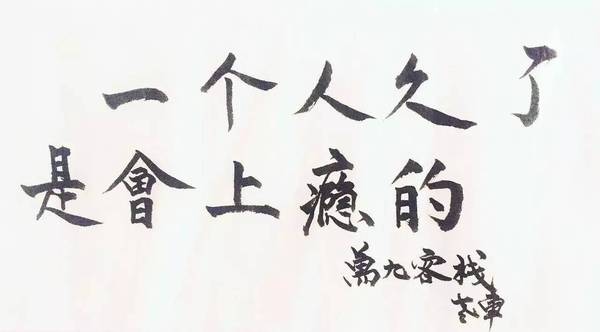 一个人久了
是會上瘾的
萬九客栈
老車